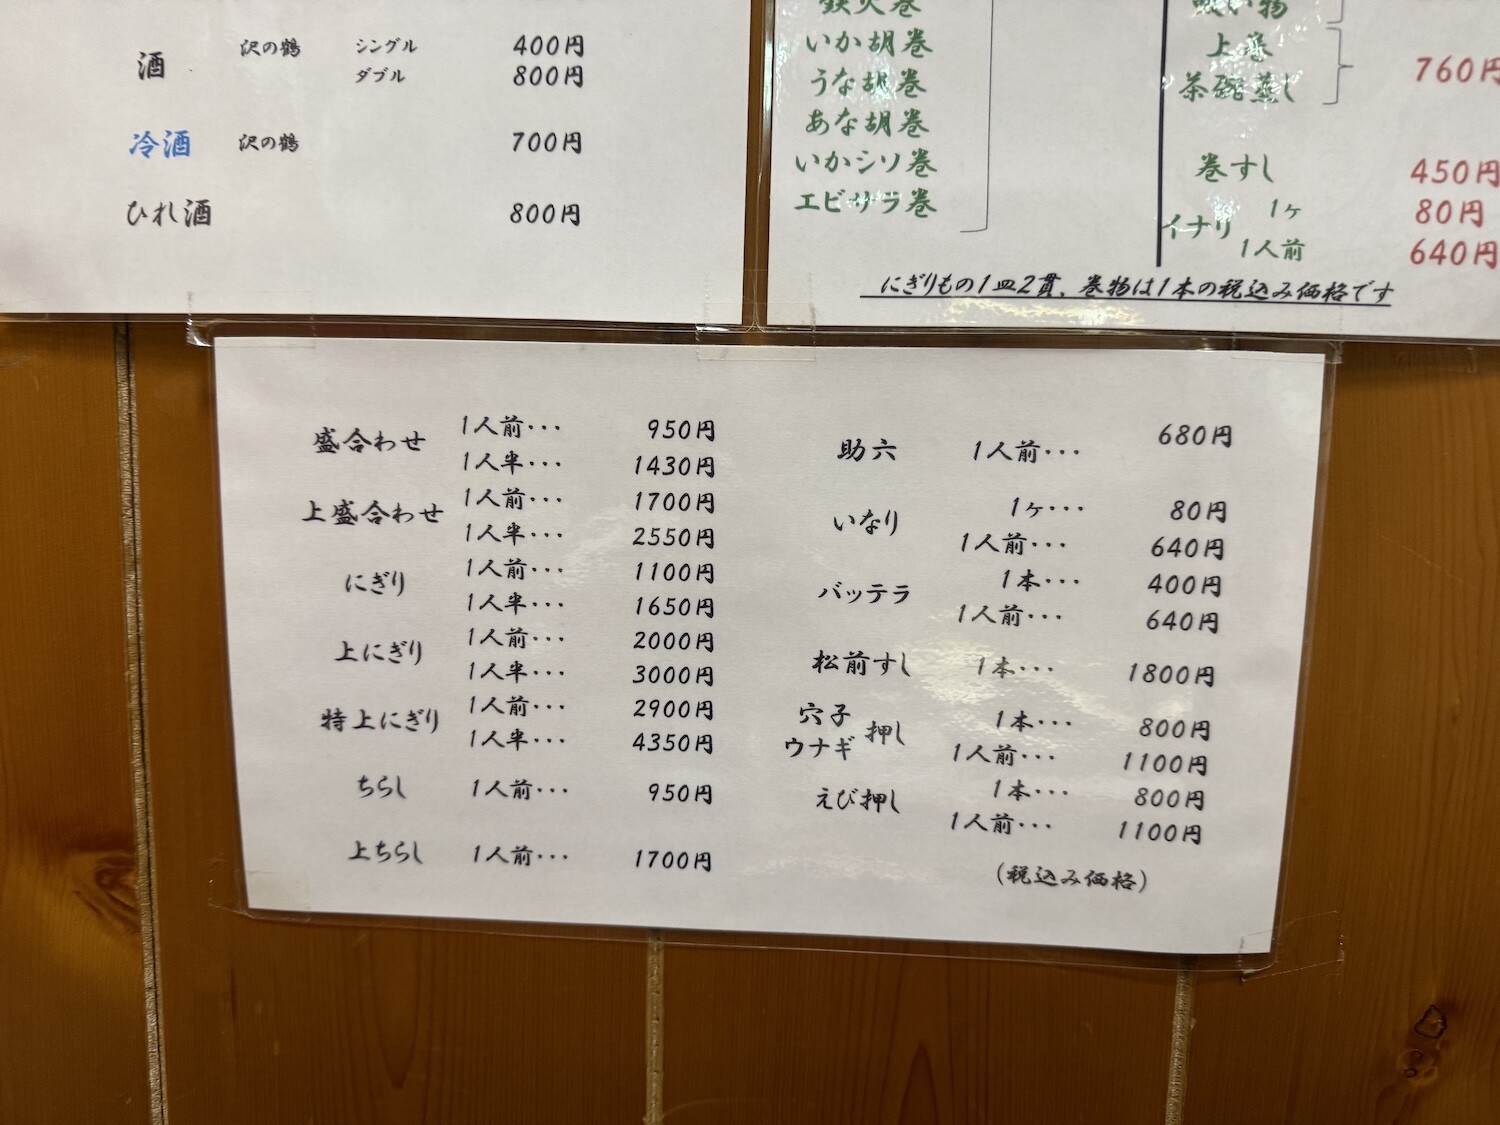 酒 沢の鶴 シングル 400円
ダブル 800円
冷酒 沢の鶴 700円
ひれ酒 800円
鉄火巻
いか胡巻
うな胡巻
あな胡巻
いかシソ巻
エビサラ巻
吸い物
上巻
茶碗蒸し
760円
巻すし 450円
イナリ 1ヶ 80円
1人前 640円
にぎりもの1皿2貫、巻物は1本の税込み価格です
盛合わせ 1人前・・・ 950円
1人半・・・ 1430円
上盛合わせ 1人前・・・ 1700円
1人半・・・ 2550円
にぎり 1人前・・・ 1100円
1人半・・・ 1650円
上にぎり 1人前・・・ 2000円
1人半・・・ 3000円
特上にぎり 1人前・・・ 2900円
1人半・・・ 4350円
ちらし 1人前・・・ 950円
上ちらし 1人前・・・ 1700円
助六 1人前・・・ 680円
いなり 1ヶ・・・ 80円
1人前・・・ 640円
バッテラ 1本・・・ 400円
1人前・・・ 640円
松前すし 1本・・・ 1800円
穴子 ウナギ 押し 1本・・・ 800円
1人前・・・ 1100円
えび押し 1本・・・ 800円
1人前・・・ 1100円
(税込み価格)